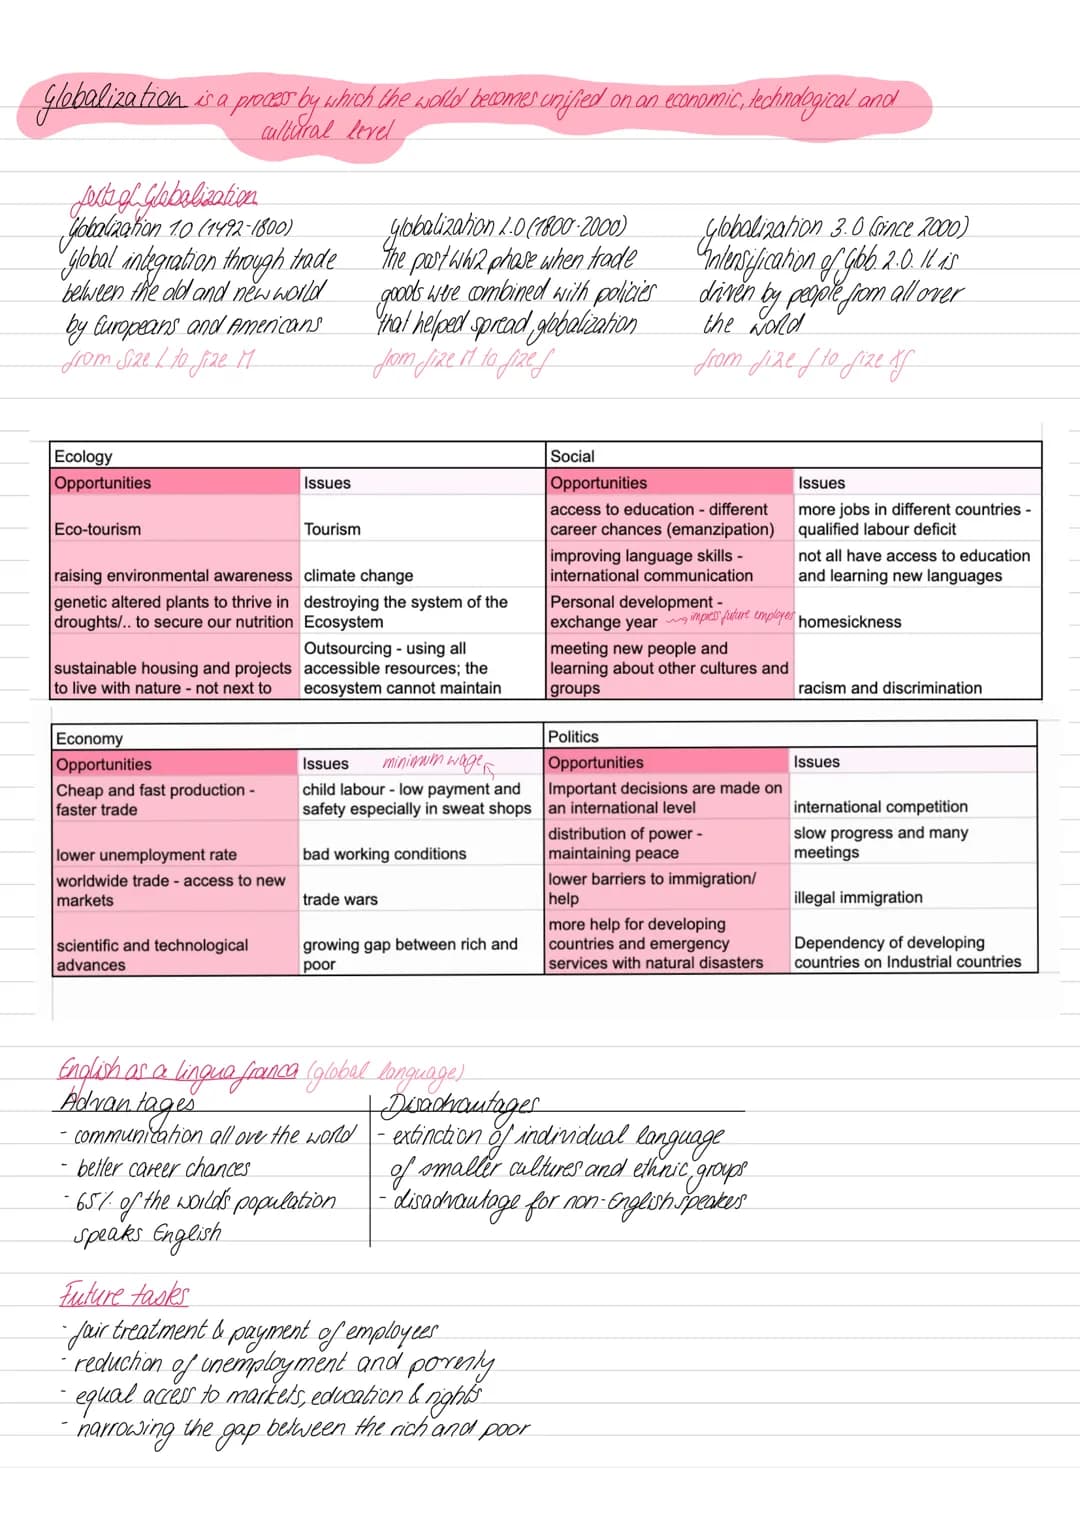 Globalization is a process by which the world becomes unified on an economic, technological and
cultural level
sorts of Globalization
Globalization 1.0 (1492-1800)
global integration through trade
between the old and new world
by Europeans and Americans
from size L to size M
Globalization 2.0 (1800-2000)
The post WW2 phase when trade
goods were combined with policies
that helped spread globalization
from size M to size S
Globalization 3.0 (since 2000)
Intensification of Glob. 2.0. It is
driven by people from all over
the world
from size S to size XS
Ecology
Opportunities
Issues
Eco-tourism
Tourism
raising environmental awareness
climate change
genetic altered plants to thrive in
droughts/.. to secure our nutrition
destroying the system of the
Ecosystem
sustainable housing and projects
to live with nature - not next to
Outsourcing - using all
accessible resources; the
ecosystem cannot maintain
Social
Opportunities
Issues
access to education - different
career chances (emanzipation)
more jobs in different countries -
qualified labour deficit
improving language skills -
international communication
not all have access to education
and learning new languages
Personal development -
exchange year
impress future employer
homesickness
meeting new people and
learning about other cultures and
groups
racism and discrimination
Economy
Opportunities
Issues
minimum wage
Cheap and fast production -
faster trade
child labour - low payment and
safety especially in sweat shops
lower unemployment rate
bad working conditions
worldwide trade - access to new
markets
trade wars
scientific and technological
advances
growing gap between rich and
poor
Politics
Opportunities
Issues
Important decisions are made on
an international level
international competition
distribution of power -
maintaining peace
slow progress and many
meetings
lower barriers to immigration/
help
illegal immigration
more help for developing
countries and emergency
services with natural disasters
Dependency of developing
countries on Industrial countries
English as a lingua franca (global language)
Advantages
- communication all over the world
- better career chances
- 65% of the world's population
speaks English
Disadvantages
- extinction of individual language
of smaller cultures and ethnic groups
- disadvantage for non-English speakers
Future tasks
- fair treatment & payment of employees
- reduction of unemployment and poverty
- equal access to markets, education & rights
- narrowing the gap between the rich and poor